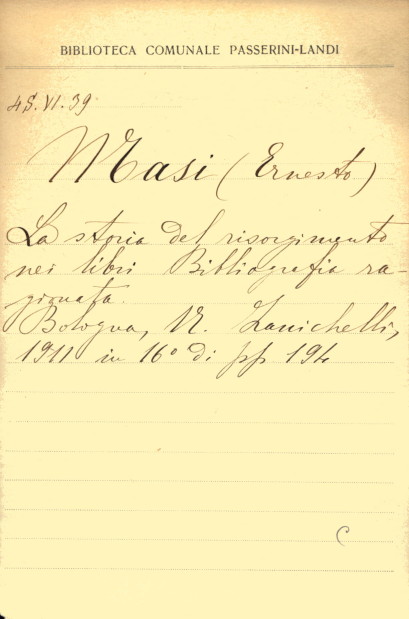 BIBLIOTECA COMUNALE PASSERINI-LANDI
4S. VI. 39
Masi (Ernesto)
La storia del risorgimento
nei libri Bibliografia ra-
gionata.
Bologna, N. Zanichelli,
1911 in 16° di pp 194
C